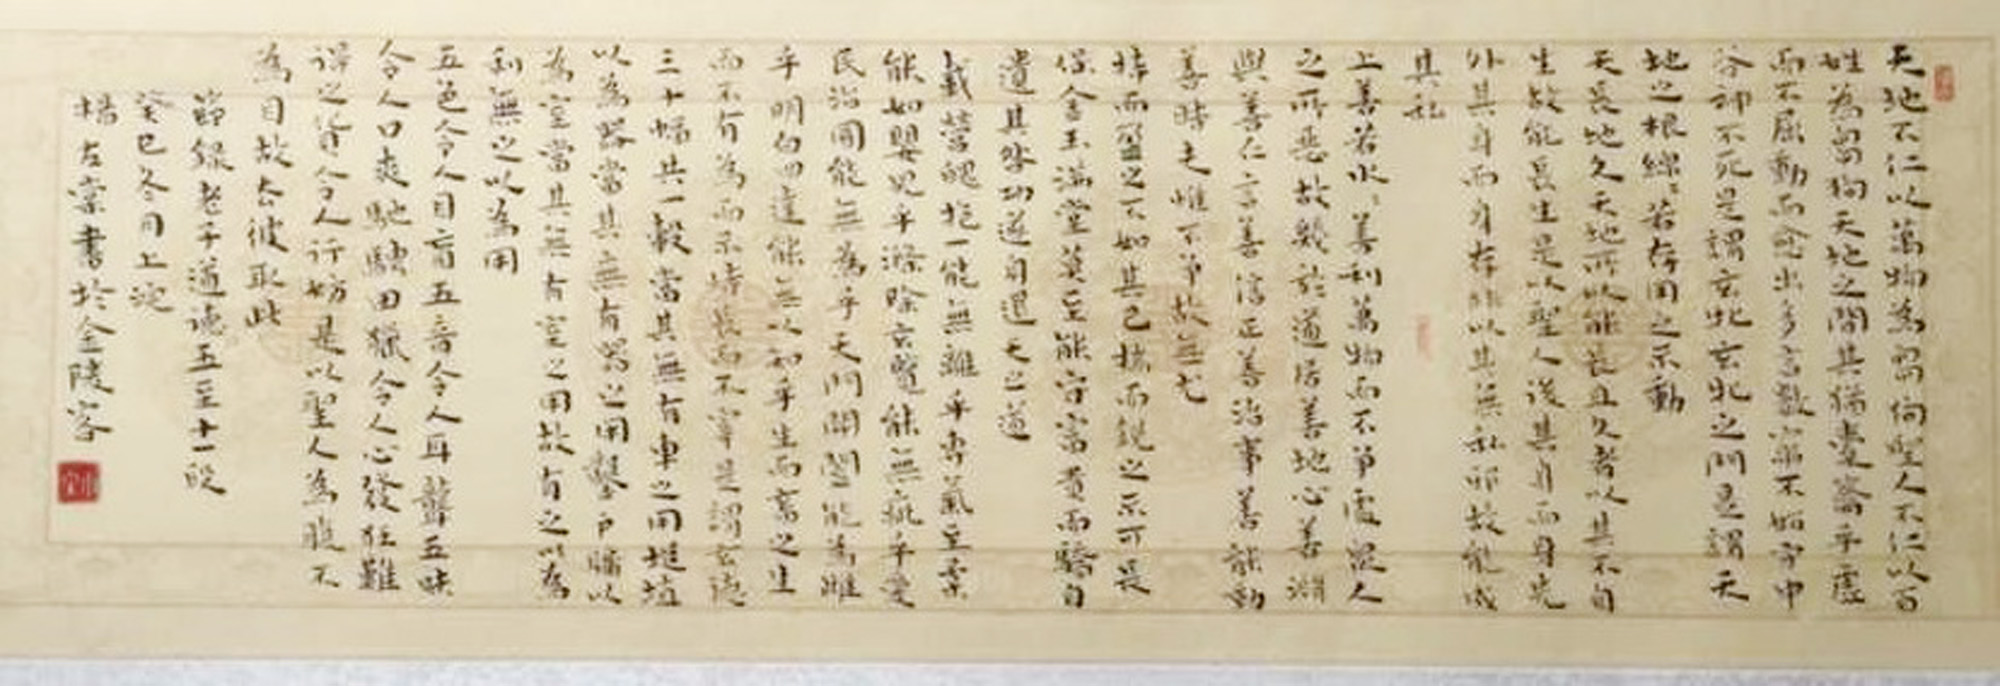 天地不仁以萬物為芻狗聖人不仁以百
姓為芻狗天地之間其猶橐籥乎虛
而不屈動而愈出多言數窮不如守中
谷神不死是謂玄牝玄牝之門是謂天
地之根綿〻若存用之不動
天長地久天地所以能長且久者以其不自
生故能長生是以聖人後其身而身先
外其身而身存非以其無私邪故能成
其私
上善若水〻善利萬物而不爭處眾人
之所惡故幾於道居善地心善淵
與善仁言善信正善治事善能動
善時夫惟不爭故無尤
持而盈之不如其已揣而銳之不可長
保金玉滿堂莫之能守富貴而驕自
遺其咎功遂身退天之道
載營魄抱一能無離乎專氣至柔
能如嬰兒乎滌除玄覽能無疵乎愛
民治國能無為乎天門開闔能為雌
乎明白四達能無以知乎生而畜之生
而不有為而不恃長而不宰是謂玄德
三十幅共一轂當其無有車之用埏埴
以為器當其無有器之用鑿戶牖以
為室當其無有室之用故有之以為
利無之以為用
五色令人目盲五音令人耳聾五味
令人口爽馳騁田獵令人心發狂難
得之貨令人行妨是以聖人為腹不
為目故去彼取此
節錄老子道德五至十一段
癸巳冬月上浣
楊左棠書於金陵客